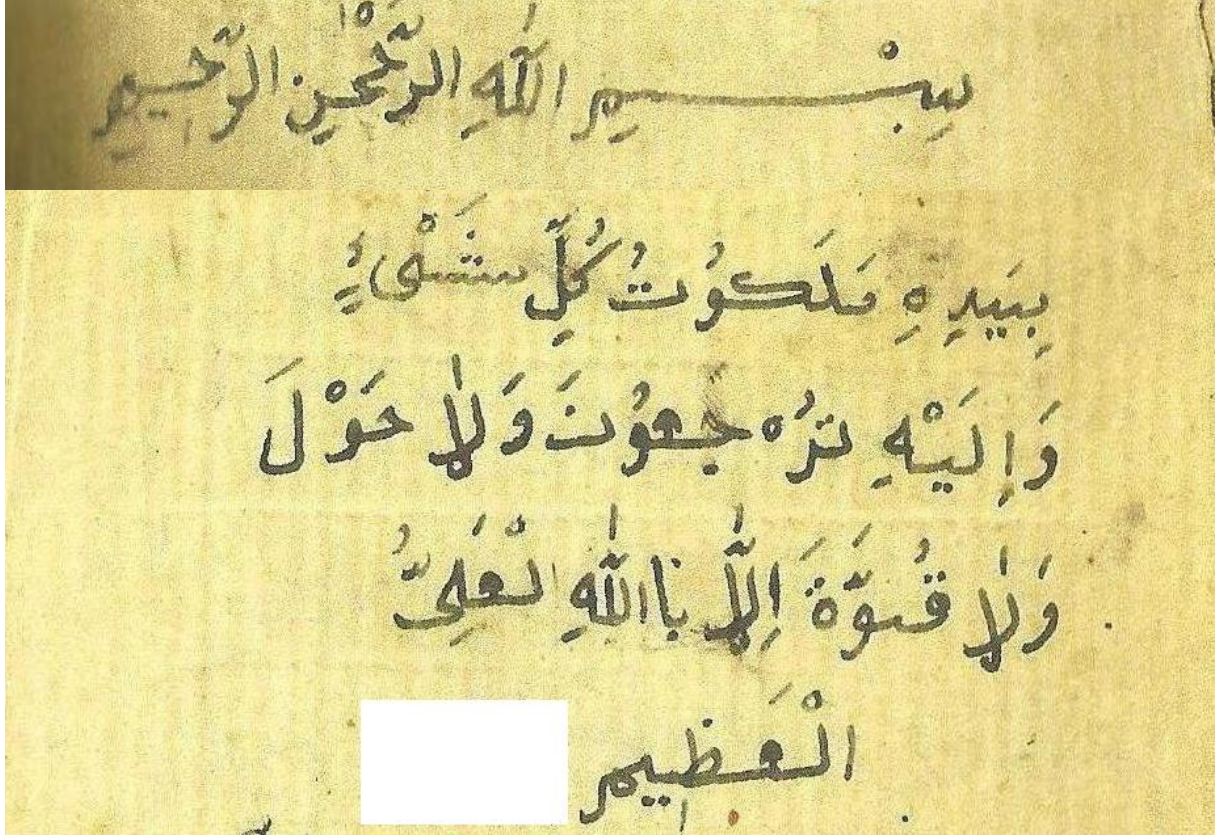 بِسْــــــمِ اللّٰهِ الرَّحْمٰنِ الرَّحِيمِ
بِيَدِهِ مَلَكوُتُ كُلِّ شَىْءٍ
وَإِلَيْهِ تُرْجَعوُنَ وَلاٰ حَوْلَ
وَلاٰ قُوَّةَ إِلاَّ بااللّٰهِ الْعَلِىُّ
الْعَظِيمِ